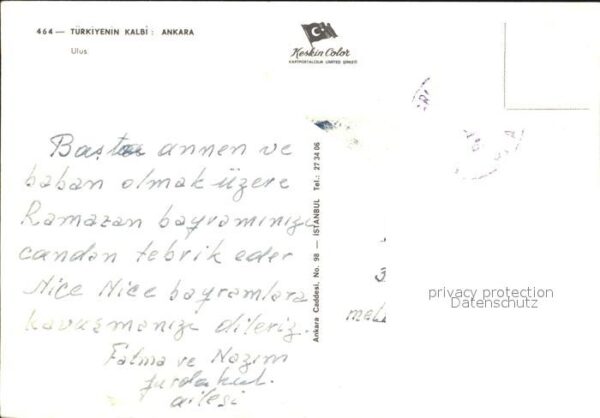 464 — TÜRKİYENİN KALBİ : ANKARA
Ulus
Keskin Color
KARTPOSTALCILIK LIMITED ŞİRKETİ
Başta annen ve
baban olmak üzere
Ramazan bayramınızı
candan tebrik eder
Nice Nice bayramlara
kavuşmanızı dileriz.
Fatma ve Nazım
ailesi
Ankara Caddesi, No. 98 — İSTANBUL Tel.: 27 34 06
3
privacy protection
Datenschutz